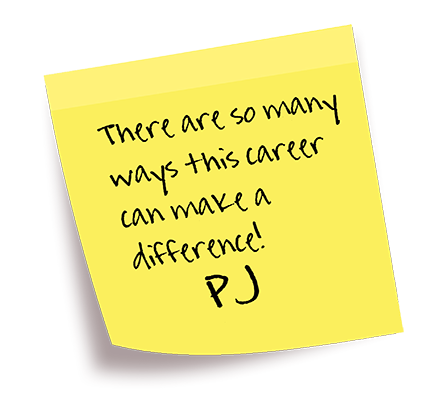 There are so many
ways this career
can make a
difference!
PJ